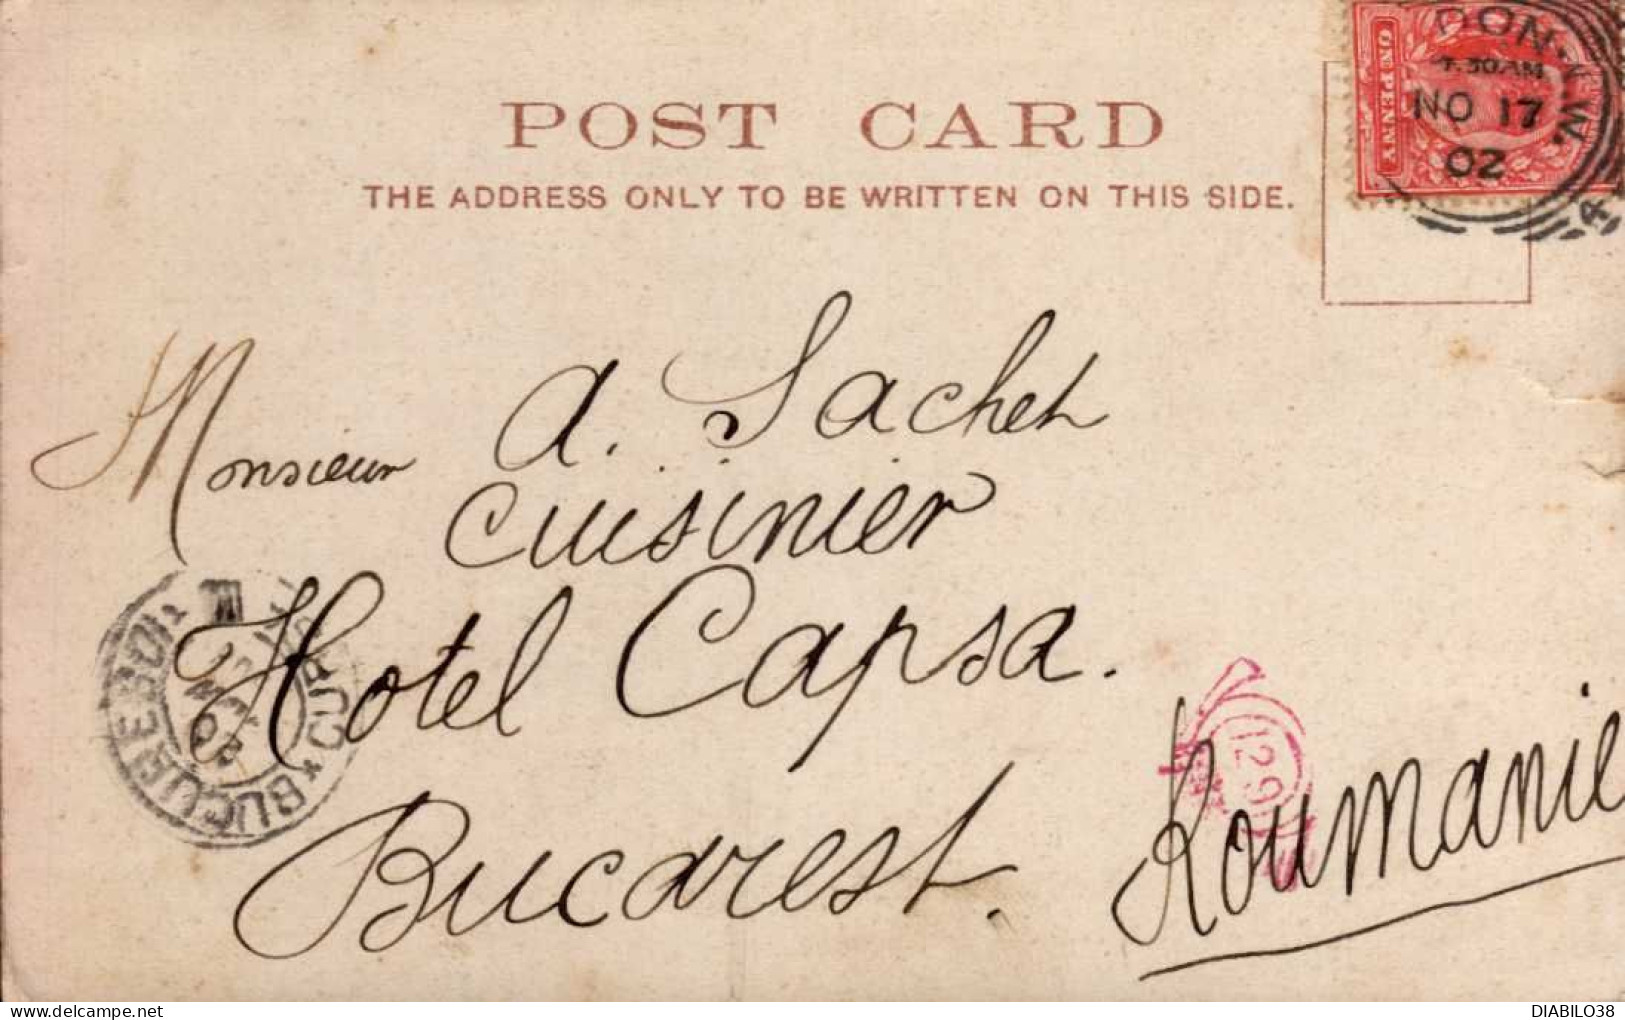 POST CARD
THE ADDRESS ONLY TO BE WRITTEN ON THIS SIDE.
ONE PENNY
DON. W.
4.30 AM
NO 17
02
Monsieur A. Sachet
Cuisinier
Hotel Capsa.
Bucarest.
Roumanie
129
DIABILO38